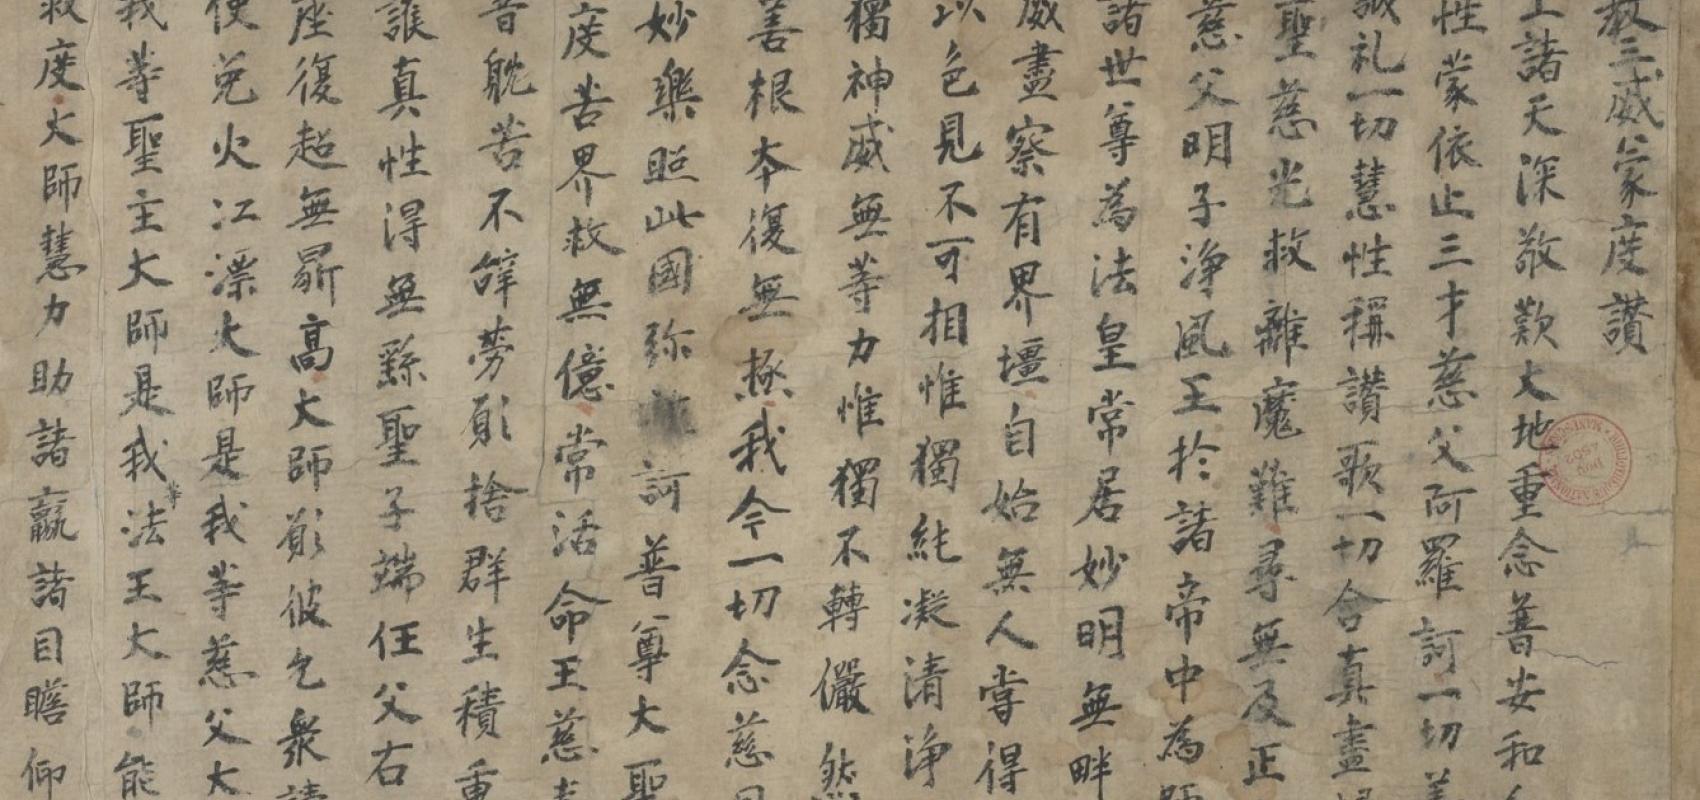 教三威蒙度讚
上諸天深敬歎大地重念普安和
性蒙依止三才慈父阿羅訶一切善
誠礼一切慧性稱讚歌一切含真盡
聖慈光救離魔難尋無及正
慈父明子浄風王於諸帝中為師
諸世尊為法皇常居妙明無畔
威盡察有界壃自始無人嘗得
以色見不可相惟獨絁凝清浄
獨神威無等力惟獨不轉儼然
善根本復無極我今一切念慈恩
妙樂照此國弥訶普尊大聖
度苦界救無億常活命王慈
音躭苦不辤勞願捨群生積重
譙真性得無繇聖子端任父右
座復超無鼎高大師願彼乞衆請
使免火江漂大師是我等慈父大
我等聖主大師是我法王大師能
等
救度大師慧力助諸羸諸目瞻仰